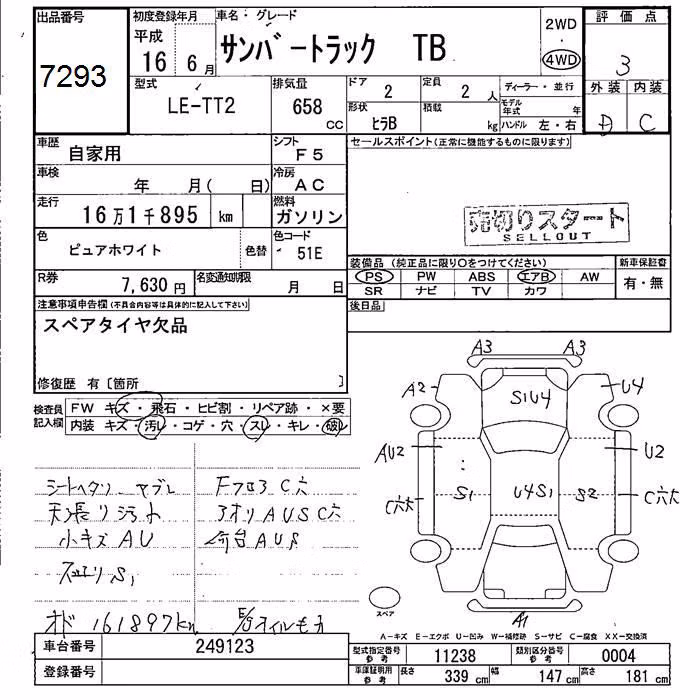 出品番号
7293
初度登録年月
平成
16 6月
車名・グレード
サンバートラック TB
2WD
・
4WD
評価点
3
外装 内装
D C
型式
LE-TT2
排気量
658
CC
ドア
2
定員
2 人
形状
ヒラB
積載
kg
ディーラー・並行
モデル年式
年
ハンドル 左・右
車歴
自家用
シフト
F5
車検
年 月( 日)
冷房
AC
走行
16万1千895 km
燃料
ガソリン
色
ピュアホワイト
色替
色コード
51E
R券
7,630円
名変通知期限
月 日
セールスポイント(正常に機能するものに限ります)
売切りスタート
SELLOUT
装備品(純正品に限り○をつけてください)
PS PW ABS エアB AW
SR ナビ TV カワ
新車保証書
有・無
後日品
注意事項申告欄(不具合内容等は具体的に記入して下さい)
スペアタイヤ欠品
修復歴 有〔箇所 〕
検査員記入欄
FW キズ・飛石・ヒビ割・リペア跡・×要
内装 キズ・汚レ・コゲ・穴・スレ・キレ・破レ
シートヘタリ ヤブレ
天張り汚れ
小キズAU
S1
オド 161897km
Fフロア C穴
アオリ AUSC穴
荷台AUS
E/gオイルモレ
A3 A3
A2
S1U4
U4
AU2
U2
S1
U4S1
S2
C穴大
C穴大
A1
スペア
A-キズ E-エクボ U-凹み W-補修跡 S-サビ C-腐食 XX-交換済
車台番号
249123
登録番号
型式指定番号
参考
11238
類別区分番号
参考
0004
車庫証明用
参考
長さ
339 cm
幅
147 cm
高さ
181 cm